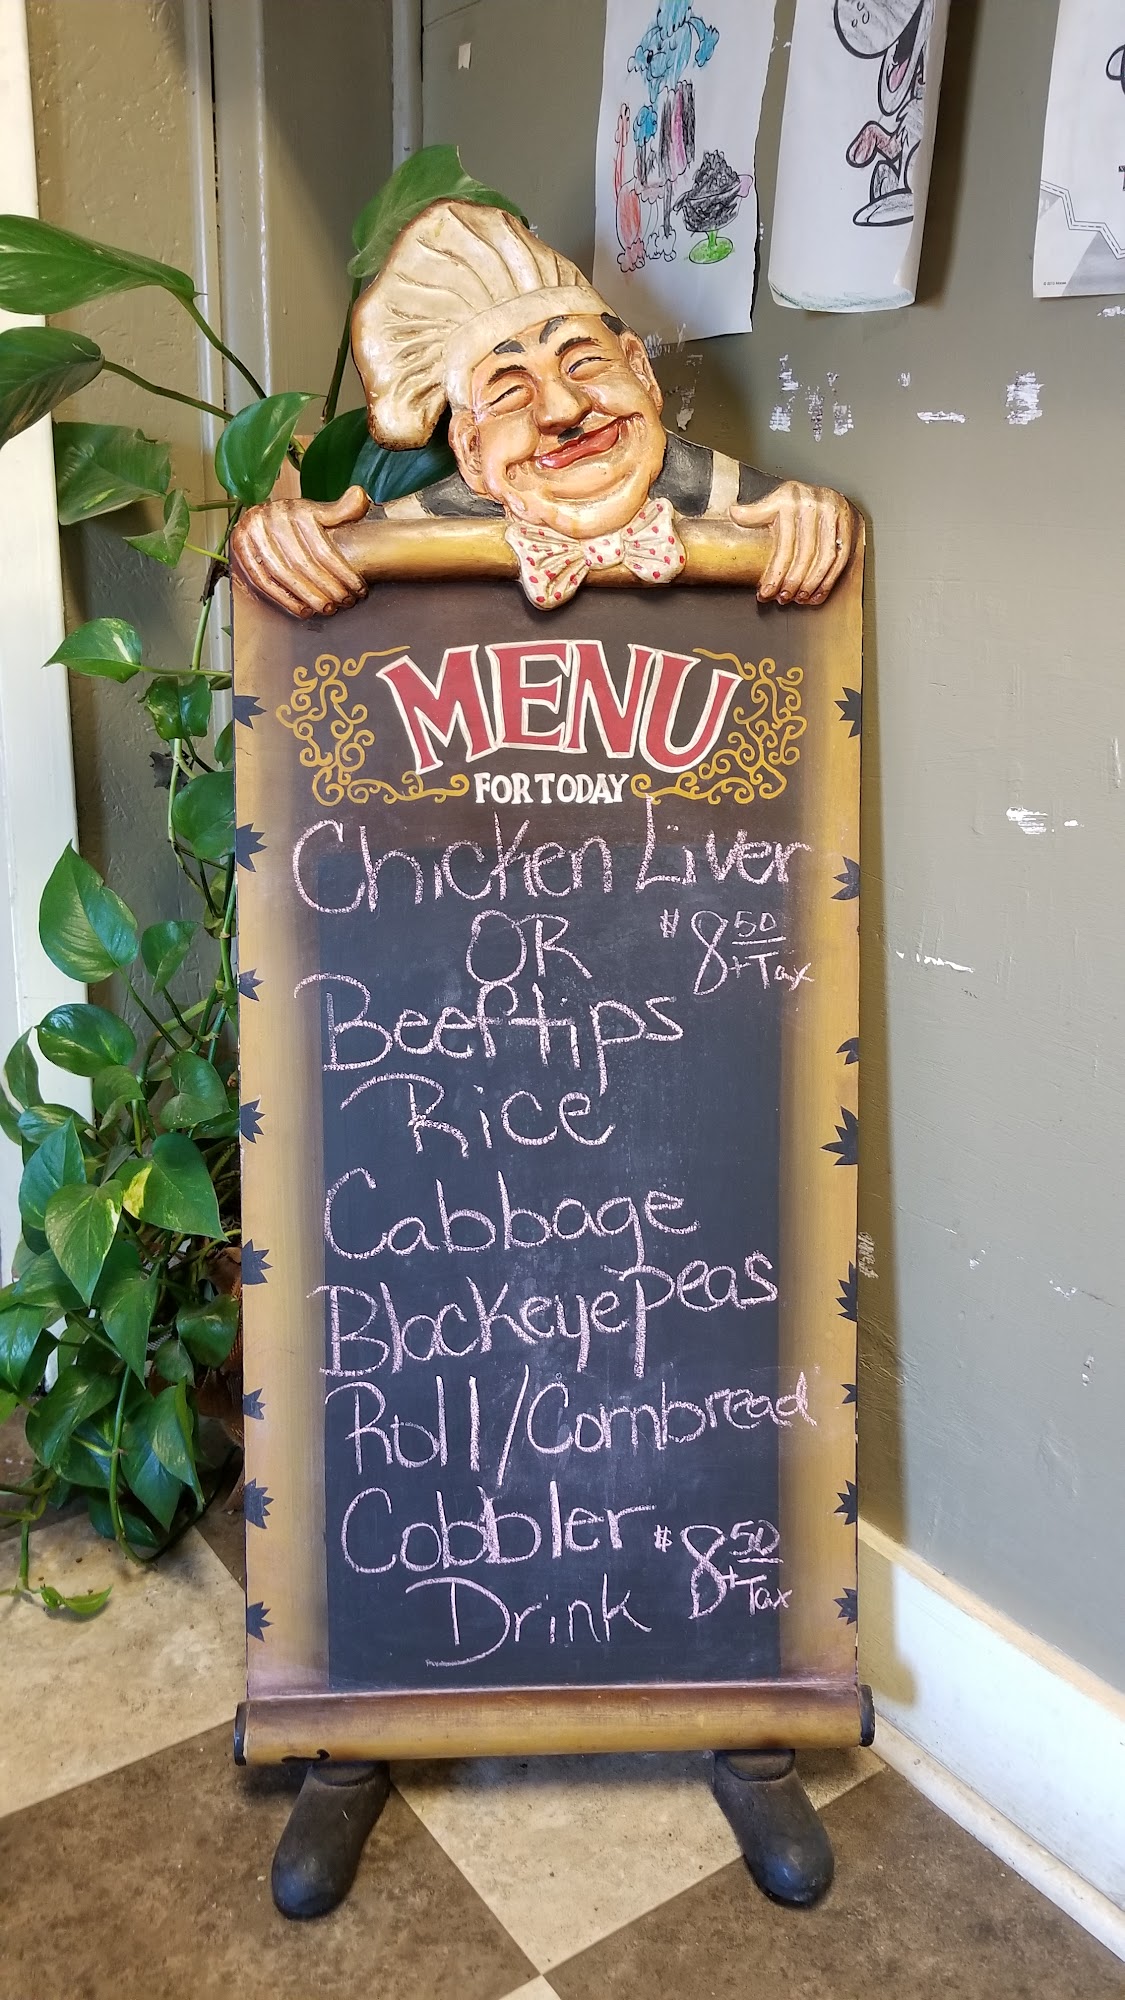 MENU
FOR TODAY
Chicken Liver
OR $8 50 + Tax
Beef tips
Rice
Cabbage
Blackeyepeas
Roll/Cornbread
Cobbler
Drink $8 50 + Tax